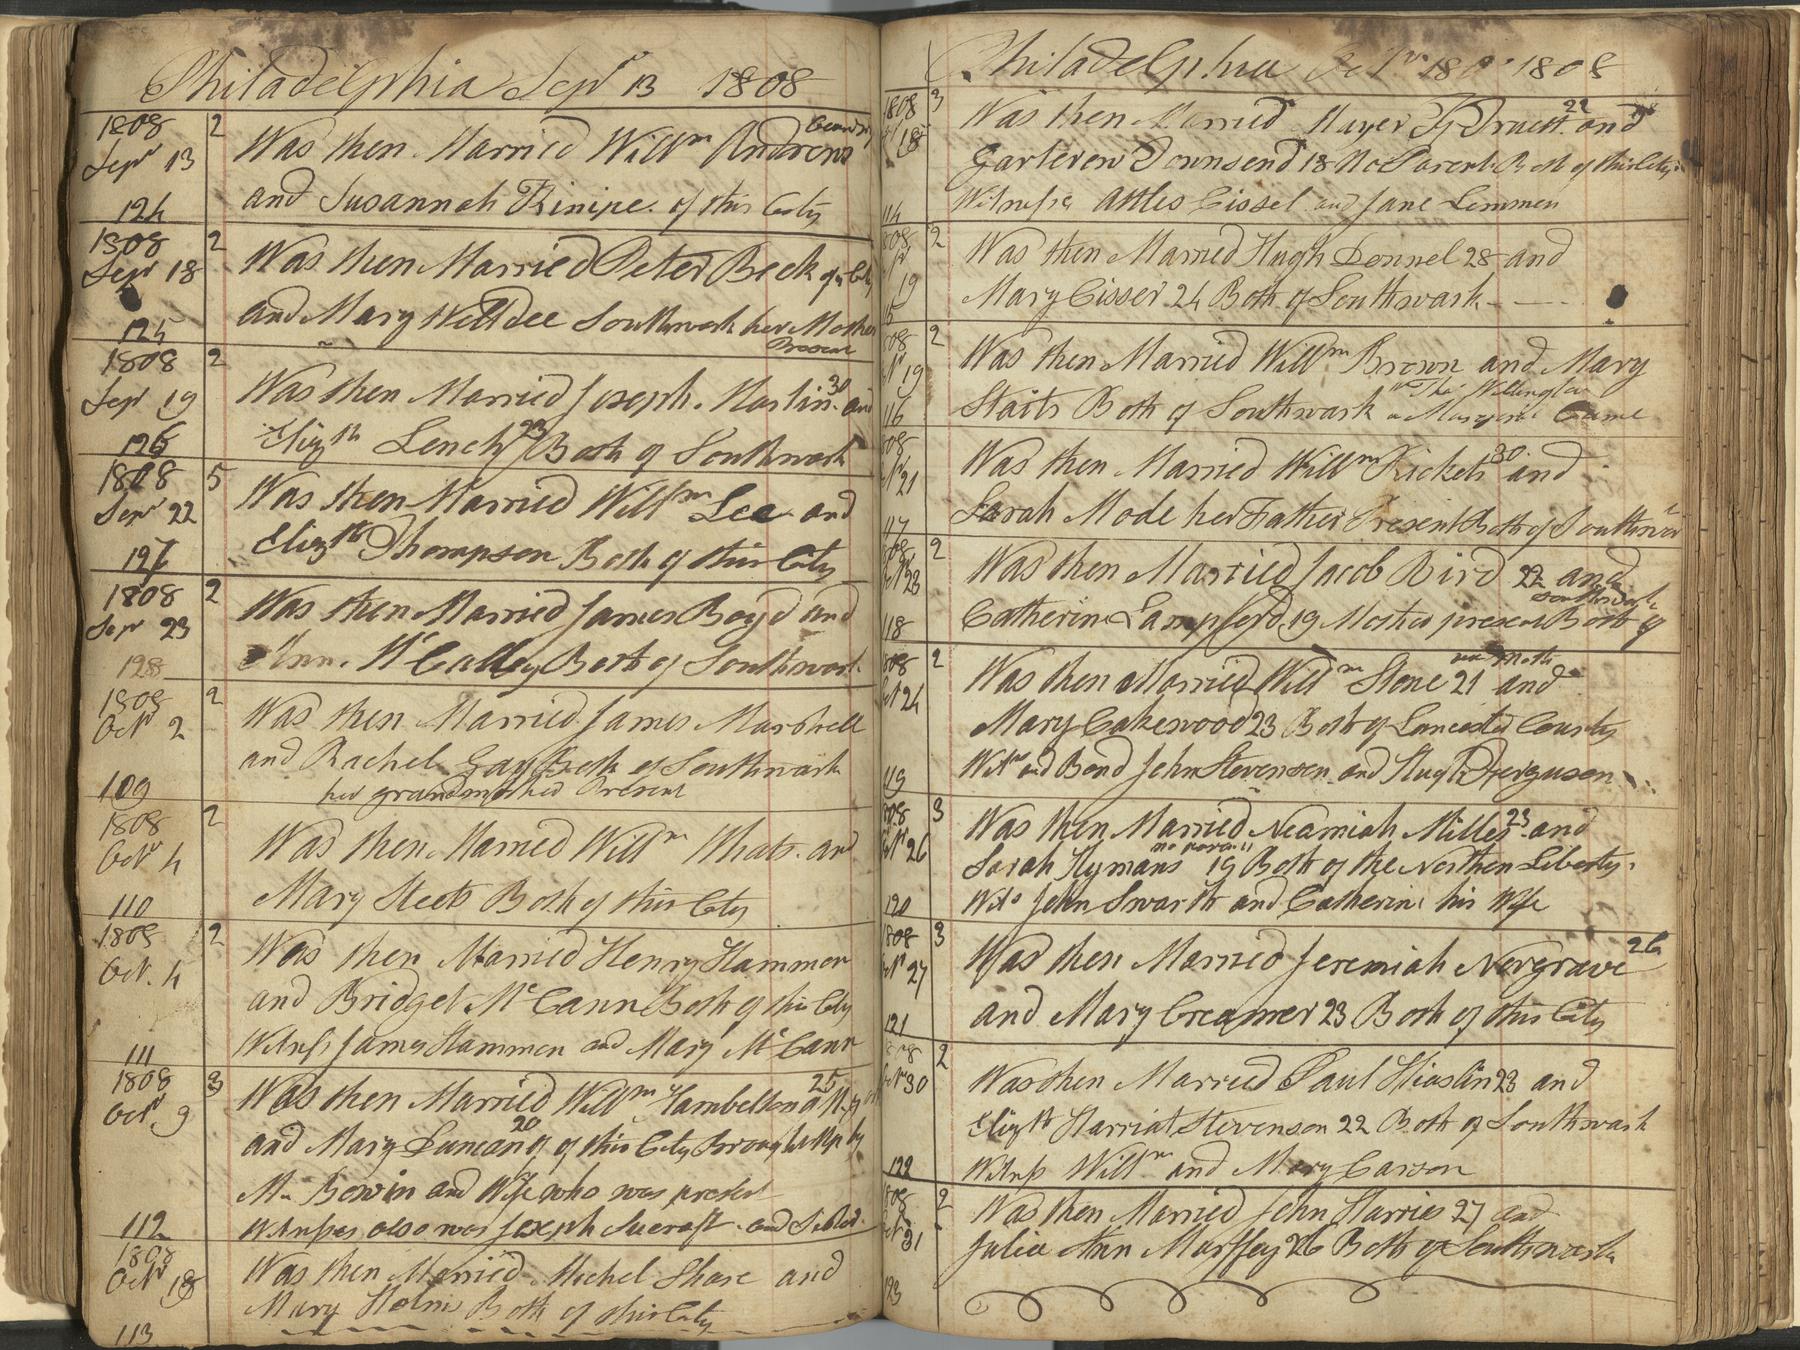 Philadelphia Sepr 13 1808
1808 2 Was then Married Willm Andrews
Sepr 13
124 and Susannah Kinipe. of this City
1808 2 Was then Married Peter Beck of City
Sepr 18
125 and Mary Welldee Southwark her Mother
Present
1808 2
Sepr 19 Was then Married Joseph. Haslin. 30 and
126 Elizth Lench 23 Both of Southwark
1808 5 Was then Married Willm Lee and
Sepr 22
127 Elizth Thompson Both of this City
1808 2 Was then Married James Boyd and
Sepr 23
128 Ann. McCalley Both of Southwark
1808 2 Was then Married James Marshell
Octr 2
and Rachel Gay Both of Southwark
109 her grandmother Present
1808 2
Octr 4 Was then Married Willm and
110 Mary Steets Both of this City
1808 2 Was then Married Henry Hammon
Oct. 4
and Bridget McCann Both of this City
111 Witness James Hammon and Mary McCann
1808 3 Was then Married Willm Hambelton 25
Octr 9
and Mary Duncan 20 of this City Brought up by
Mr Bowin and Wife who was present
112 Witnesses also was Joseph and
1808 Was then Married Michel Shase and
Octr 18
113 Mary Holms Both of this City
Philadelphia Octr 18 1808
1808 3 Was then Married Mayer 22 and
18
Townsend 18 No Parents Both of this City
114 Witness Cissel and Jane Lemmen
808 2 Was then Married Hugh Donnel 28 and
19
15 Mary Cisser 24 Both of Southwark
808 2 Was then Married Willm Brown and Mary
19
116 Staits Both of Southwark
808 Was then Married Willm Rickets 30 and
21
117 Sarah Mode her Father Present Both of Southwar
808 2 Was then Married Jacob Bird 22 and
23 Southwark
118 Catherine Lampford 19 Mother present Both of
808 2 Was then Married Willm Stone 21 and
24
Mary Cakewood 23 Both of Lancaster County
119 Wits and Bond John Stevenson and Hugh Ferguson
808 3 Was then Married Neamiah Miller 23 and
26 no parents
Sarah Hymans 19 Both of the Northen Liberty.
120 Wits John Swarth and Catherine his Wife
1808 3 Was then Married Jeremiah Norgrave 26
27
121 and Mary Creamer 23 Both of this City
1808 2 Was then Married Paul Hiaslin 23 and
Octr 30
Elizth Harriat Stevenson 22 Both of Southwark
122 Witness Willm and Mary Carson
808 2 Was then Married John Harris 27 and
31
Julia Ann Marffey 26 Both of Southwark
123